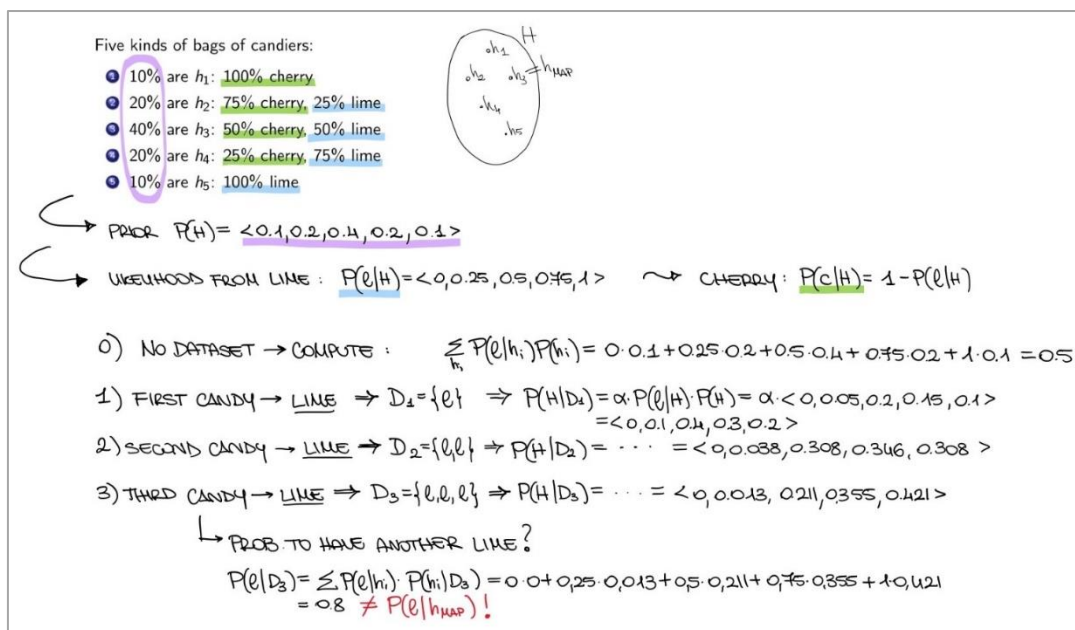 Five kinds of bags of candiers:
1 10% are h₁: 100% cherry
2 20% are h₂: 75% cherry, 25% lime
3 40% are h₃: 50% cherry, 50% lime
4 20% are h₄: 25% cherry, 75% lime
5 10% are h₅: 100% lime
H
.h₁
.h₂ .h₃=h_MAP
.h₄
.h₅
PRIOR P(H)= <0.1,0.2,0.4,0.2,0.1>
LIKELIHOOD FROM LIME: P(ℓ|H)=<0,0.25,0.5,0.75,1> ⤳ CHERRY: P(c|H)= 1-P(ℓ|H)
0) NO DATASET → COMPUTE: ∑_hᵢ P(ℓ|hᵢ)P(hᵢ)= 0·0.1+0.25·0.2+0.5·0.4+0.75·0.2+1·0.1 =0.5
1) FIRST CANDY → LIME ⇒ D₁={ℓ} ⇒ P(H|D₁)=α·P(ℓ|H)·P(H)= α·<0,0.05,0.2,0.15,0.1>
=<0,0.1,0.4,0.3,0.2>
2) SECOND CANDY → LIME ⇒ D₂={ℓ,ℓ} ⇒ P(H|D₂)= ···· =<0,0.038,0.308,0.346,0.308>
3) THIRD CANDY → LIME ⇒ D₃={ℓ,ℓ,ℓ} ⇒ P(H|D₃)= ···· = <0,0.013,0.211,0.355,0.421>
↳ PROB. TO HAVE ANOTHER LIME?
P(ℓ|D₃)= ∑ P(ℓ|hᵢ)·P(hᵢ|D₃)=0·0+0,25·0,013+0,5·0,211+0,75·0,355+1·0,421
=0.8 ≠ P(ℓ|h_MAP)!